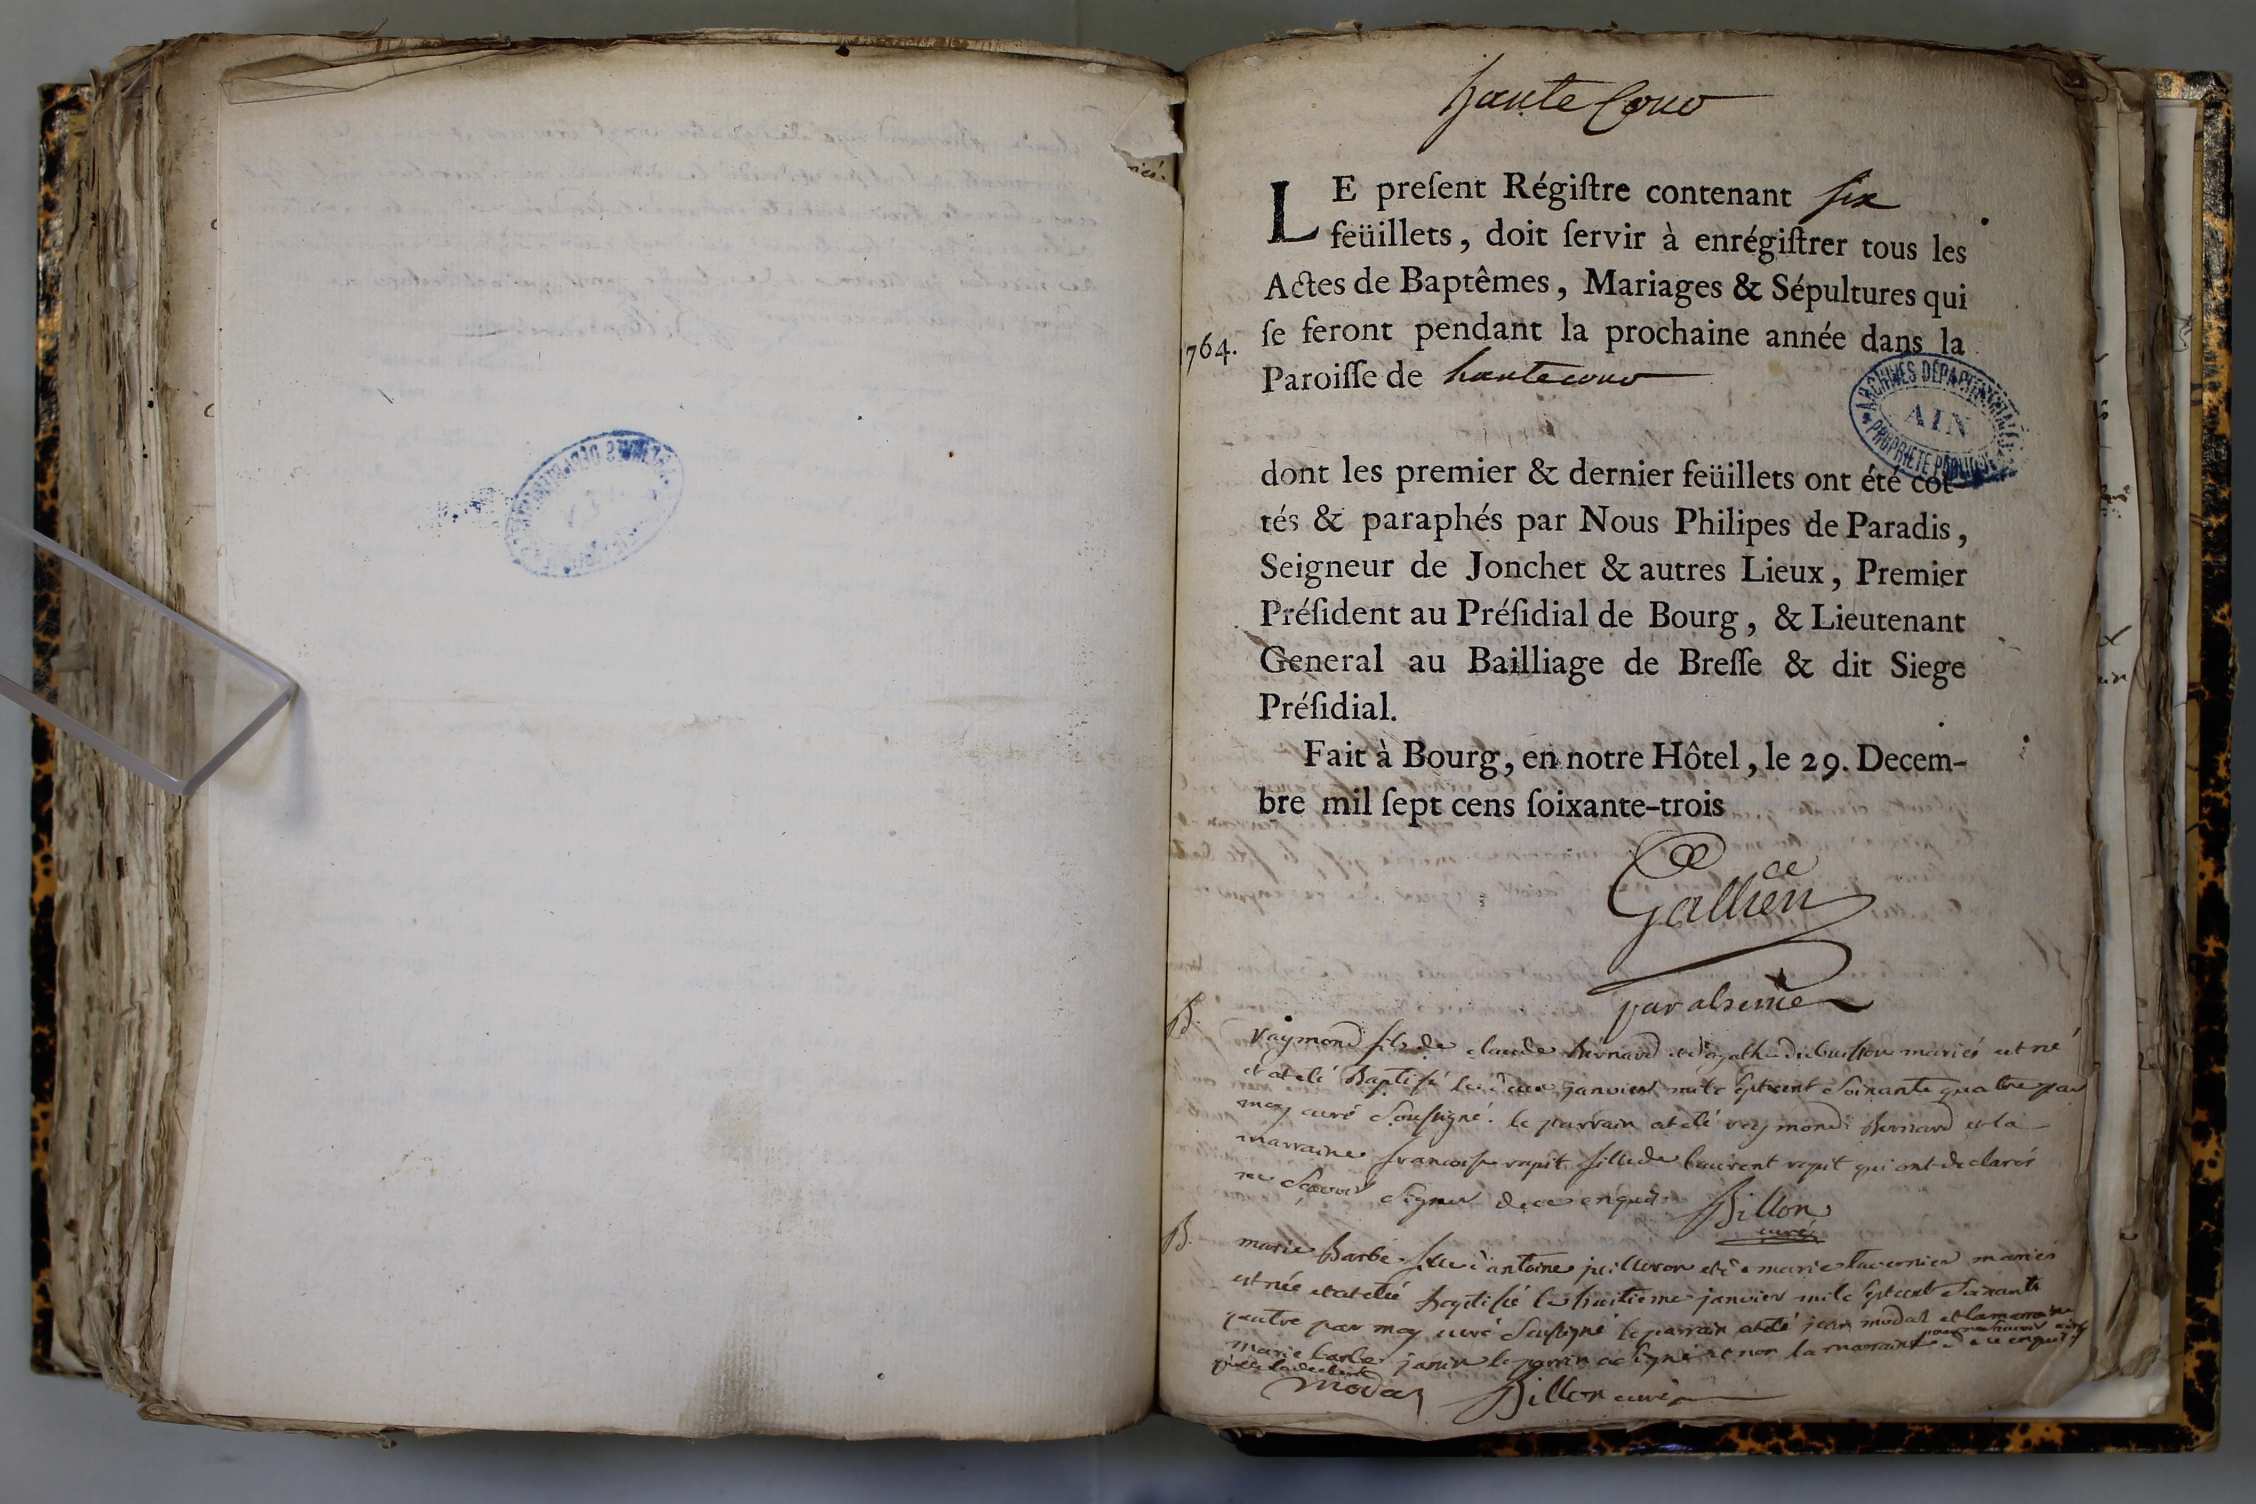 haute Cour
LE preſent Régiſtre contenant six
feüillets, doit ſervir à enrégiſtrer tous les
Actes de Baptêmes, Mariages & Sépultures qui
ſe feront pendant la prochaine année dans la
1764.
Paroiſſe de hautecour
ARCHIVES DÉPARTEMENTALES
AIN
PROPRIÉTÉ PUBLIQUE
dont les premier & dernier feüillets ont été cot-
tés & paraphés par Nous Philipes de Paradis,
Seigneur de Jonchet & autres Lieux, Premier
Préſident au Préſidial de Bourg, & Lieutenant
General au Bailliage de Breſſe & dit Siege
Préſidial.
Fait à Bourg, en notre Hôtel, le 29. Decem-
bre mil ſept cens ſoixante-trois
Gallien
par absence
B.
raymond fils de claude bernard et d'agathe dubuisson mariés est né
et a eté Baptisé le deux janvier mile septcent soixante quatre par
moy curé soussigné. le parrain a eté reymond Bernard et la
marraine francoise rapit fille de laurent rapit qui ont declarés
ne sçavoir signer de ce enquis Billon
curé
B.
marie Barbe fille d'antoine juilleron et de marie tavernier mariés
est née et a eté baptisée le huitieme janvier mile septcent soixante
quatre par moy curé soussigné le parrain a eté jean modas et la marraine
marie barbe janin le parrain a signé et non la marraine de ce enquis
modas Billon curé